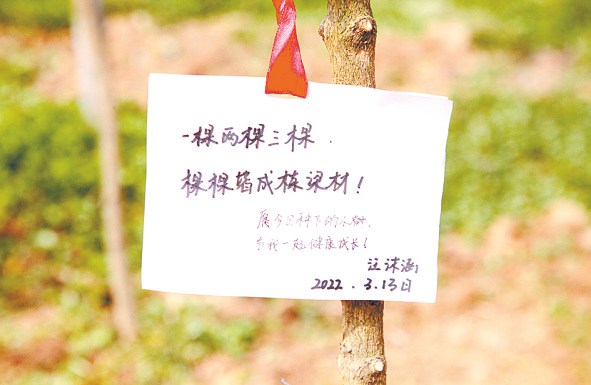 一棵两棵三棵.
棵棵皆成栋梁材!
愿今日种下的小树,
与我一起健康成长!
汪沫涵
2022.3.13日